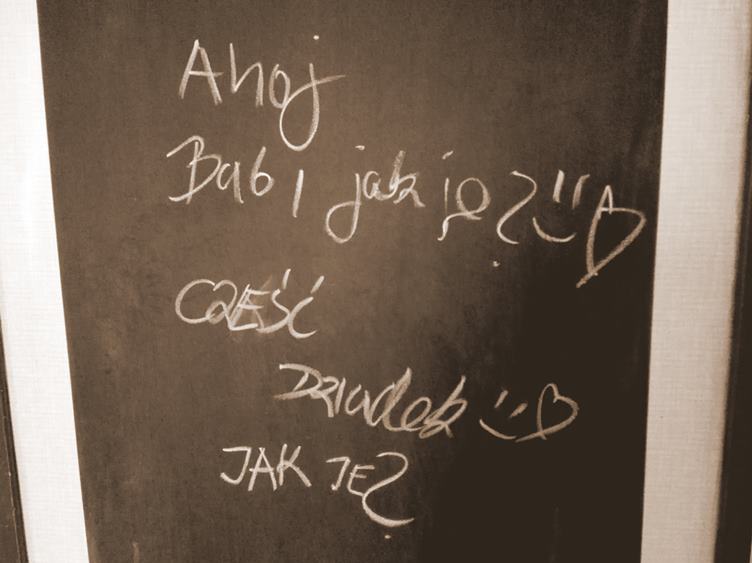 Ahoj
Babi jak je?
CZEŚĆ
Dziadek
JAK JE?